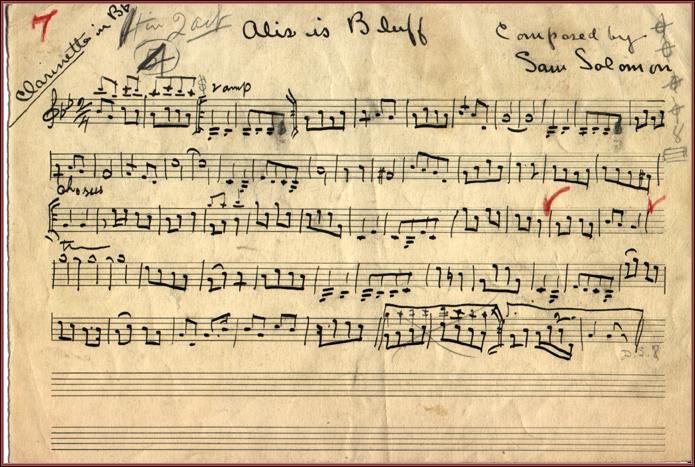 7
Clarinetto in Bb
4tin 2 act
Alis is Bluff
Composed by
Sam Solomon
vamp
chorus
tr
D.S.